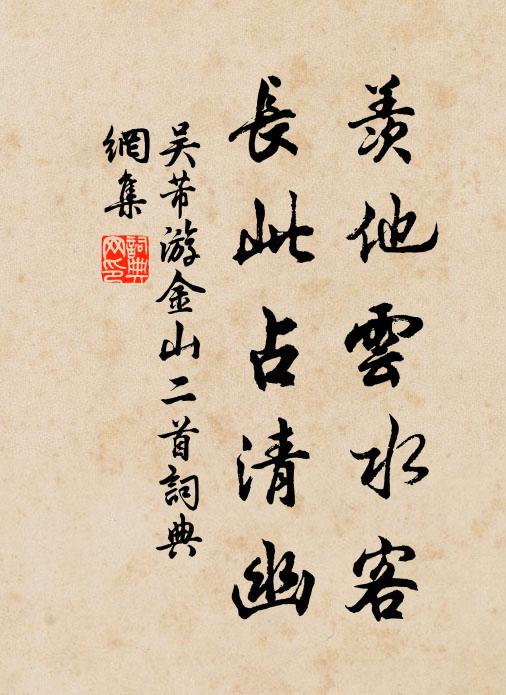 羨他雲水客
長此占清幽
吴芾游金山二首詞典
網集
詞典
网印